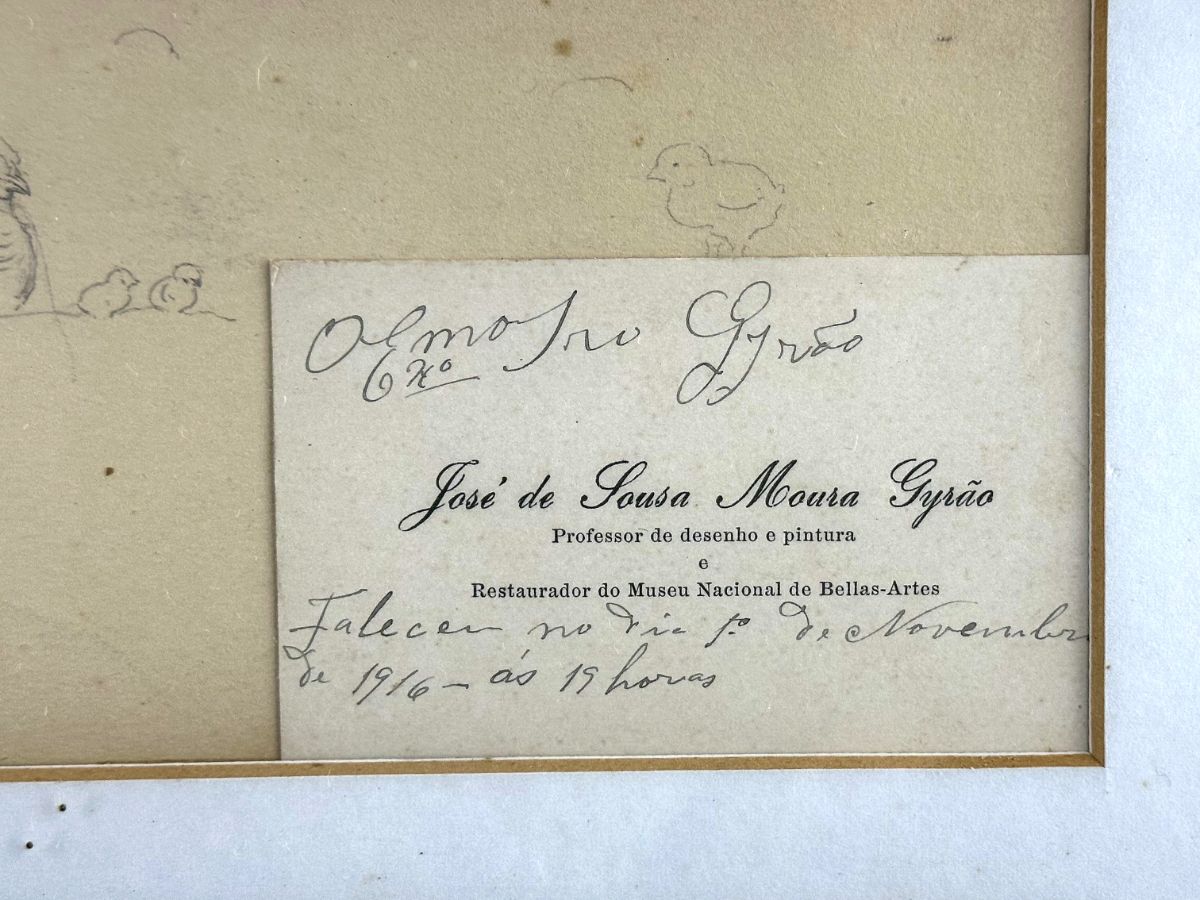 O Exmo Snr Gyrão
Exo
José de Sousa Moura Gyrão
Professor de desenho e pintura
e
Restaurador do Museu Nacional de Bellas-Artes
Faleceu no dia 1º de Novembro
de 1916 - ás 19 horas